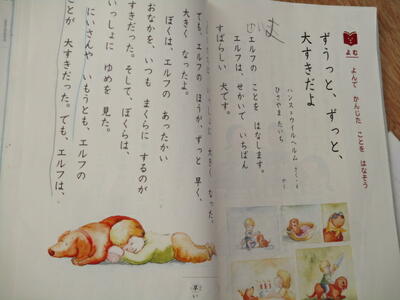 よむ
よんで かんじた ことを はなそう
ずうっと、ずっと、
大すきだよ
ハンス=ウイルヘルム さく・え
ひさやま たいち やく
エルフの ことを はなします。
エルフは、せかいで いちばん
すばらしい 犬です。
ぼくたちは、いっしょに 大きく なった。
でも、エルフの ほうが、ずっと 早く、
大きく なったよ。
ぼくは、エルフの あったかい
おなかを、いつも まくらに するのが
すきだった。そして、ぼくらは、
いっしょに ゆめを 見た。
にいさんや いもうとも、エルフの
ことが 大すきだった。でも、エルフは、
早い